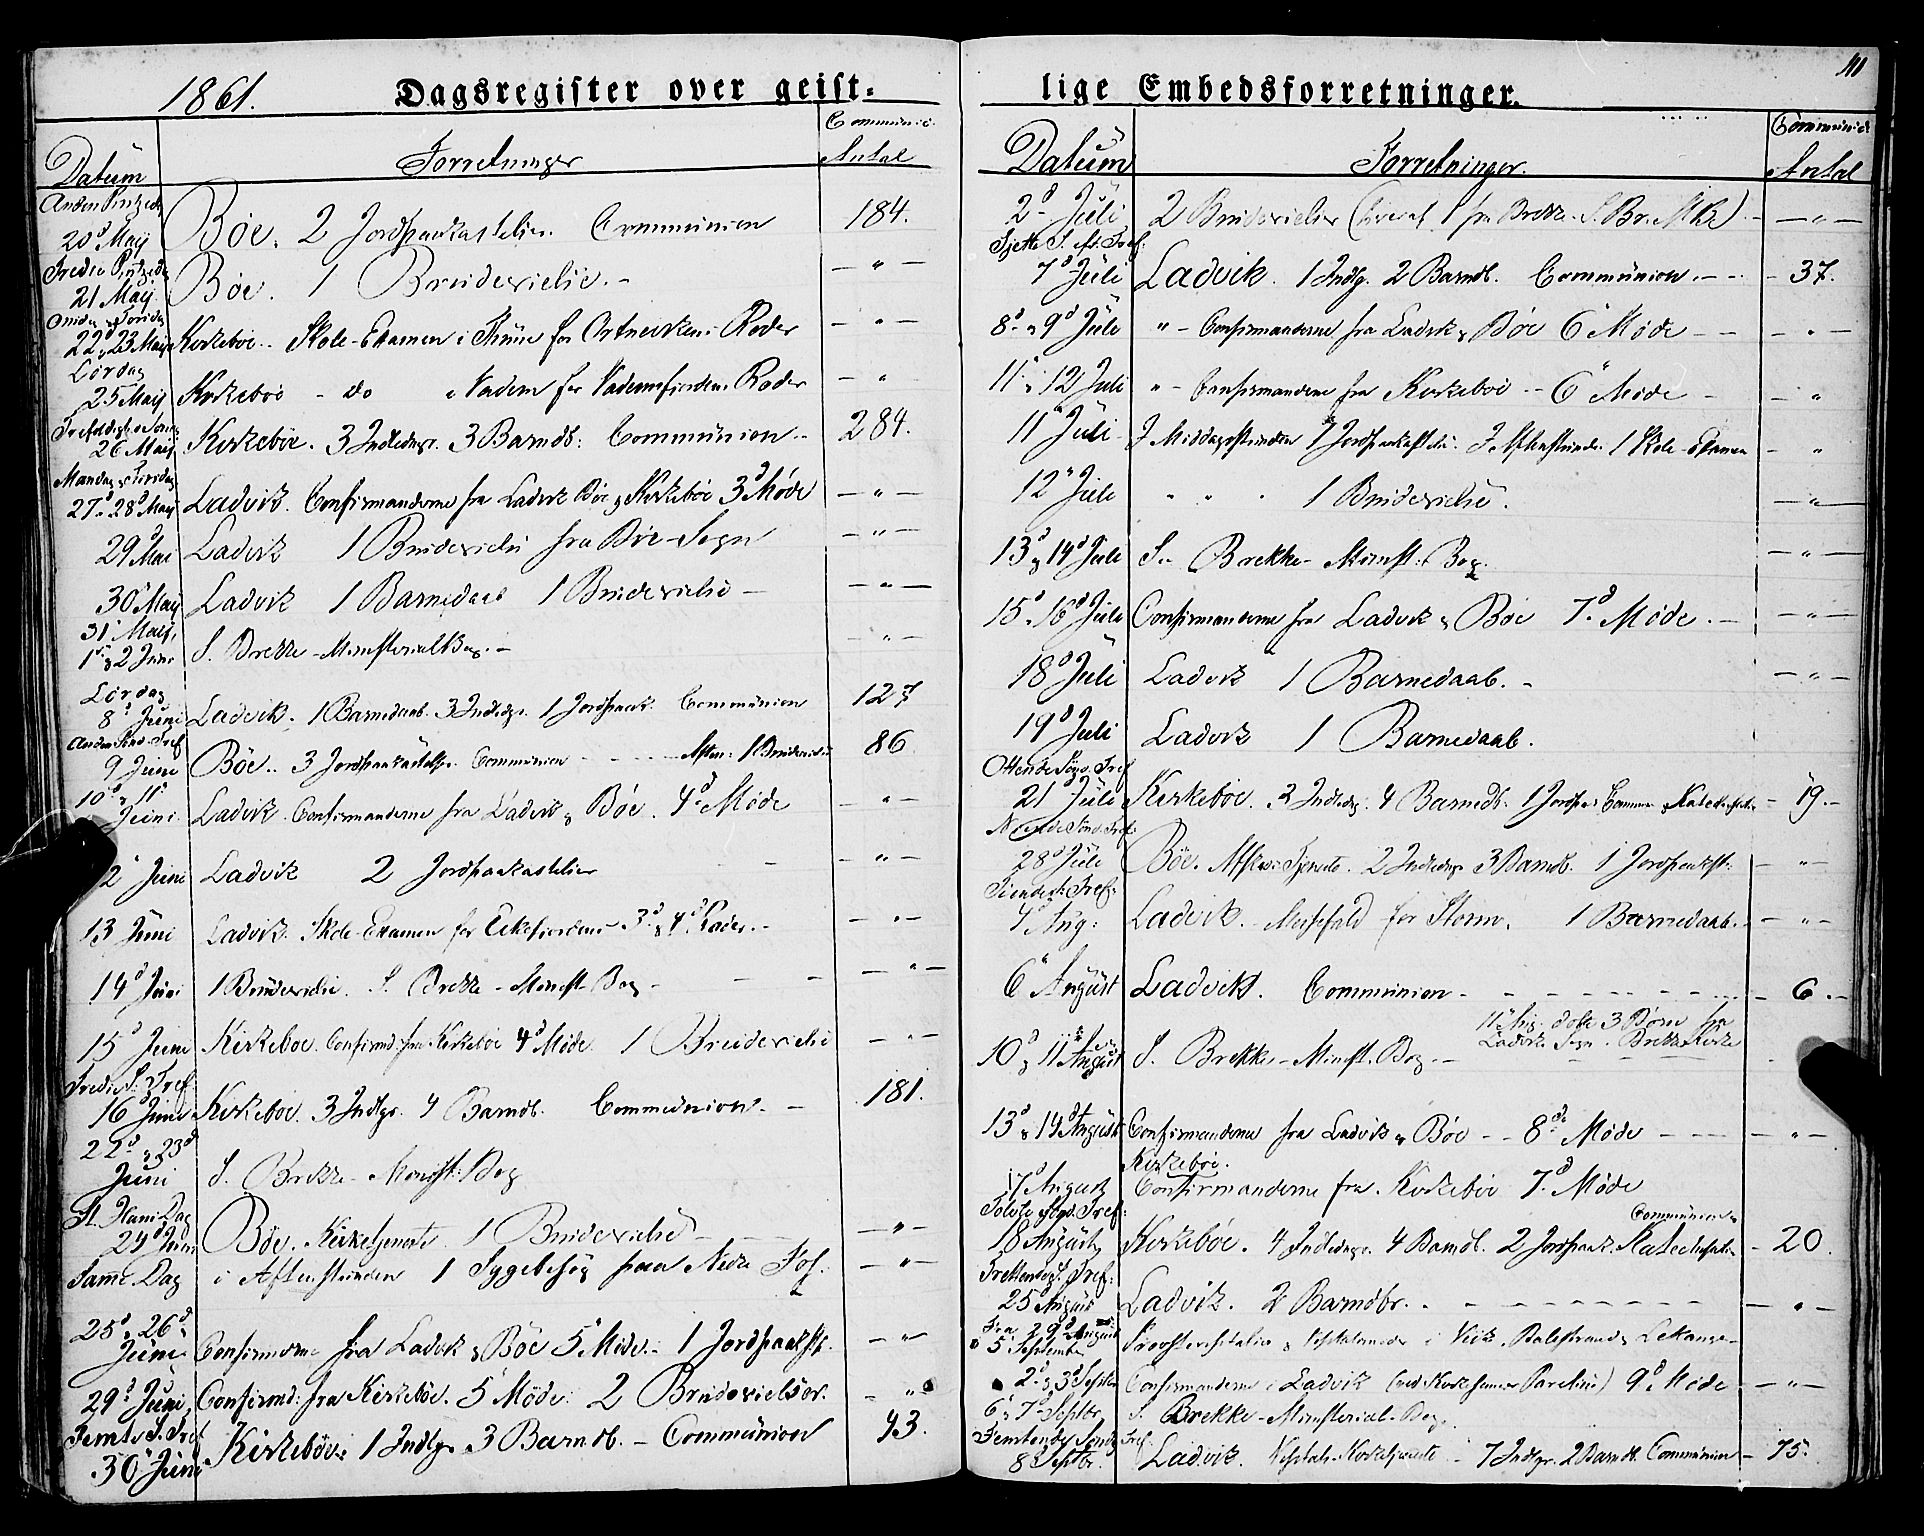 1861. Dagsregister over geist-
Datum Forretninger Communic. Antal
Anden Pintzed.
20d Maij Böe. 2 Jordpaakastelser. Communion 184.
Tredie Pintzed.
21 Maij Böe. 1 Brudevielse. - - " -
Onsdag og Torsdag
22 & 23 Maij Kirkeboe. Skole-Examen i for Roder - " -
Lördag
25 Maij Kirkeboe - do i Vadem for Vademfjordens Roder - "
26 Maij Kirkeböe. 3 Indledngr. 3 Barndb: Communion. 284.
Mandag & Tirsdag
27 & 28d Maij Ladvik. Confirmanderne fra Ladvik Böe & Kirkeböe 3d Möde - " -
29d Mai Ladvik 1 Brudevielse fra Böe-Sogn - " -
30 Maij Ladvik 1 Barnedaab 1 Brudevielse - - " -
31 Maij,
1 & 2 Juni S. Brekke - MinisterialBog. - - " -
Lördag
8d Juni Ladvik. 1 Barnedaab. 3 Indledgr. 1 Jordpaak. Communion 127
Anden Sönd. Tref
9 Juni Böe.. 3 Jordpaakastelser. Communion - - - Aften: 1 Brudevielse 86.
10d & 11
Juni Ladvik. Confirmanderne fra Ladvik & Böe. 4d Möde - " -
2 Juni Ladvik 2 Jordpaakastelser - " -
13 Juni Ladvik. Skole-Examen for 3d & 4d Roder. - - " -
14d Juni 1 Brudevielse. S. Brekke - Minist. Bog - - " -
15d Juni Kirkeboe. Confirmd: fra Kirkeboe 4d Möde. 1 Brudevielse - " -
Tredie S. Tref
16d Juni Kirkeboe. 3 Indlgr. 4 Barndb. Communion. - 181.
22d & 23d
Juni S. Brekke - Minist: Bog
St. Hans Dag
24d Juni Böe. Kirketjeneste. 1 Brudevielse - - " -
Samme Dag i Aftenstunden 1 Sygebesög paa Nedre - " -
25d & 26d
Juni Confirmderne fra Ladvik & Böe 5 Möde. 1 Jordpaakst. - " -
29d Juni, Confirmd: fra Kirkeböe. 5d Möde: 2 Brudevielser. - "
Femte S. Tref
30 Juni Kirkeböe. 1 Indlgr. 3 Barndb. - Communion 43.
lige Embedsforretninger. 111
Datum Forretninger. Communic. Antal
2d Juli 2 Brudevielser (hvoraf 1 fra Brekke. S. Br. M.B.) - " -
Sjette S. Tref:
7d Juli Ladvik. 1 Indlg. 2 Barndb. Communion. - - 37.
8d & 9d Juli " - Confirmanderne fra Ladvik & Böe 6 Möde - " -
11 & 12 Juli " - Confirmanderne fra Kirkeboe - - 6 Möde - "
11 Juli I Middagsstunden 1 Jordpaakastelse. I Aftenstunden 1 Skole-Examen - "
12 Juli " " " 1 Brudevielse. - " -
13d & 14d Juli S. Brekke - Minist: Bog. - " -
15d & 16d Juli Confirmanderne fra Ladvik & Böe 7d Möde. - - " -
18d Juli Ladvik 1 Barnedaab. - - " -
19d Juli Ladvik 1 Barnedaab.
Ottende Sönd. Tref
21d Juli Kirkeboe. 3 Indledgr. 4 Barnedb. 1 Jordpaa. Commun. & Katechisation - 19. -
Niende Sönd. Tref:
28d Juli Böe. Tjeneste. 2 Indledngr 3 Barndb. 1 Jordpaakst: - " -
Tiende S. Tref:
4d Aug: Ladvik. - Messefald for Storm. 1 Barnedaab. - - " -
6 August Ladvik. Communion - - - - 6. -
11 Aug. döbte 3 Börn fra
Ladviks Sogn i Brekke Kirke
10d & 11 August S. Brekke - Minist. Bog. -
13d & 14d August Confirmanderne fra Ladvik & Böe - - 8de Möde - - " -
Kirkeboe.
17d August Confirmanderne fra Kirkeböe 7d Möde
Tolvte Sönd. Tref: Communion
18 August Kirkeböe. 4 Indledngr. 4 Barndb. 2 Jordpaak. Katechisation - 20.
Trettende S. Tref:
25 August Ladvik. 2 Barndbr. - - - - " -
Fra 29d August
5 September Provstevisitatser i Viik, Balestrand & Lekanger -
2d & 3d Septbr Confirmanderne i Ladvik (ved Kirkesanger ) 9d Möde - " -
6 & 7 Septbr. S. Brekke - Ministerial-Bog.
Femtende Sönd. Tref:
8 Septbr. Ladvik. - 7 Indlgr. 2 Barndb. Communion - 75.